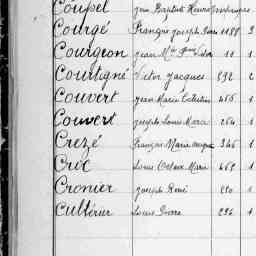 Coupel Jean Baptiste
Courgé François Joseph 1188 3
Courgeon Jean Mie 11 1
Courtigné Victor Jacques 892 2
Couvert Jean Marie 455 1
Couvert Joseph Louis Marie 264 1
Crezé François Marie 346 1
Croc Louis Marie 469 1
Cronier Joseph René 1
Cultérier Louis Pierre 296 1